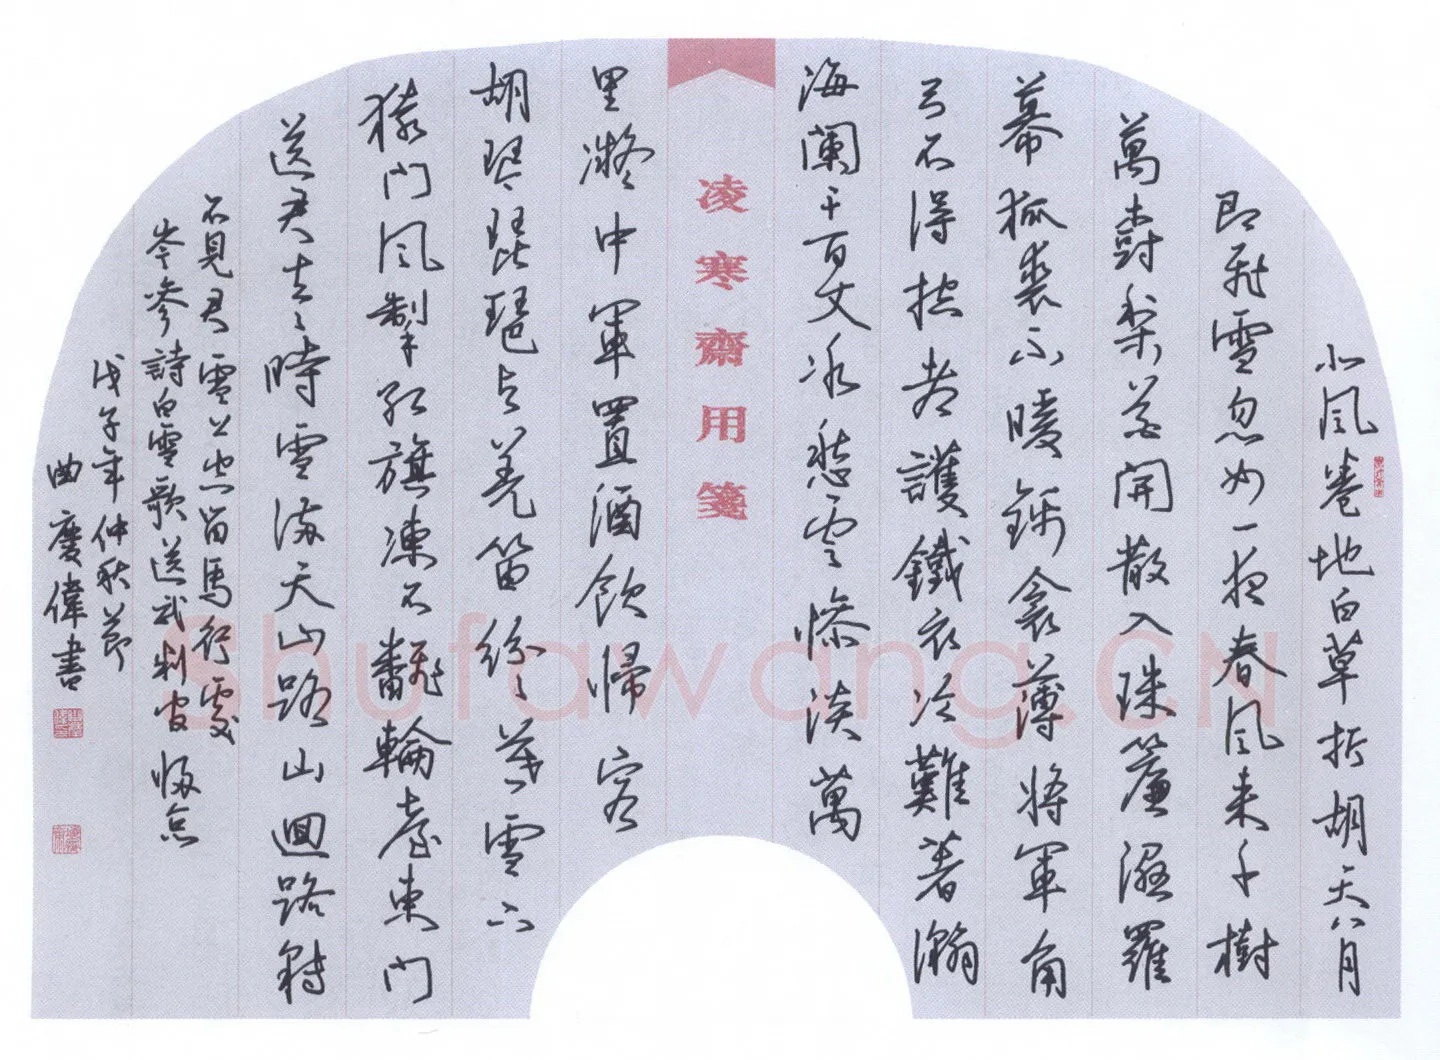 北風卷地白草折胡天八月
即飛雪忽如一夜春風来千樹
萬樹梨花開散入珠簾濕羅
幕狐裘不暖錦衾薄將軍角
弓不得控都護鐵衣冷難著瀚
海闌干百丈冰愁雲慘淡萬
凌寒齋用箋
里凝中軍置酒飲歸客
胡琴琵琶与羌笛紛紛暮雪下
轅門風掣紅旗凍不飜輪臺東門
送君去去時雪滿天山路山迴路轉
不見君雪上空留馬行處
岑參詩白雪歌送武判官歸京
戊子年仲秋節
曲慶偉書
Shufawang.CN